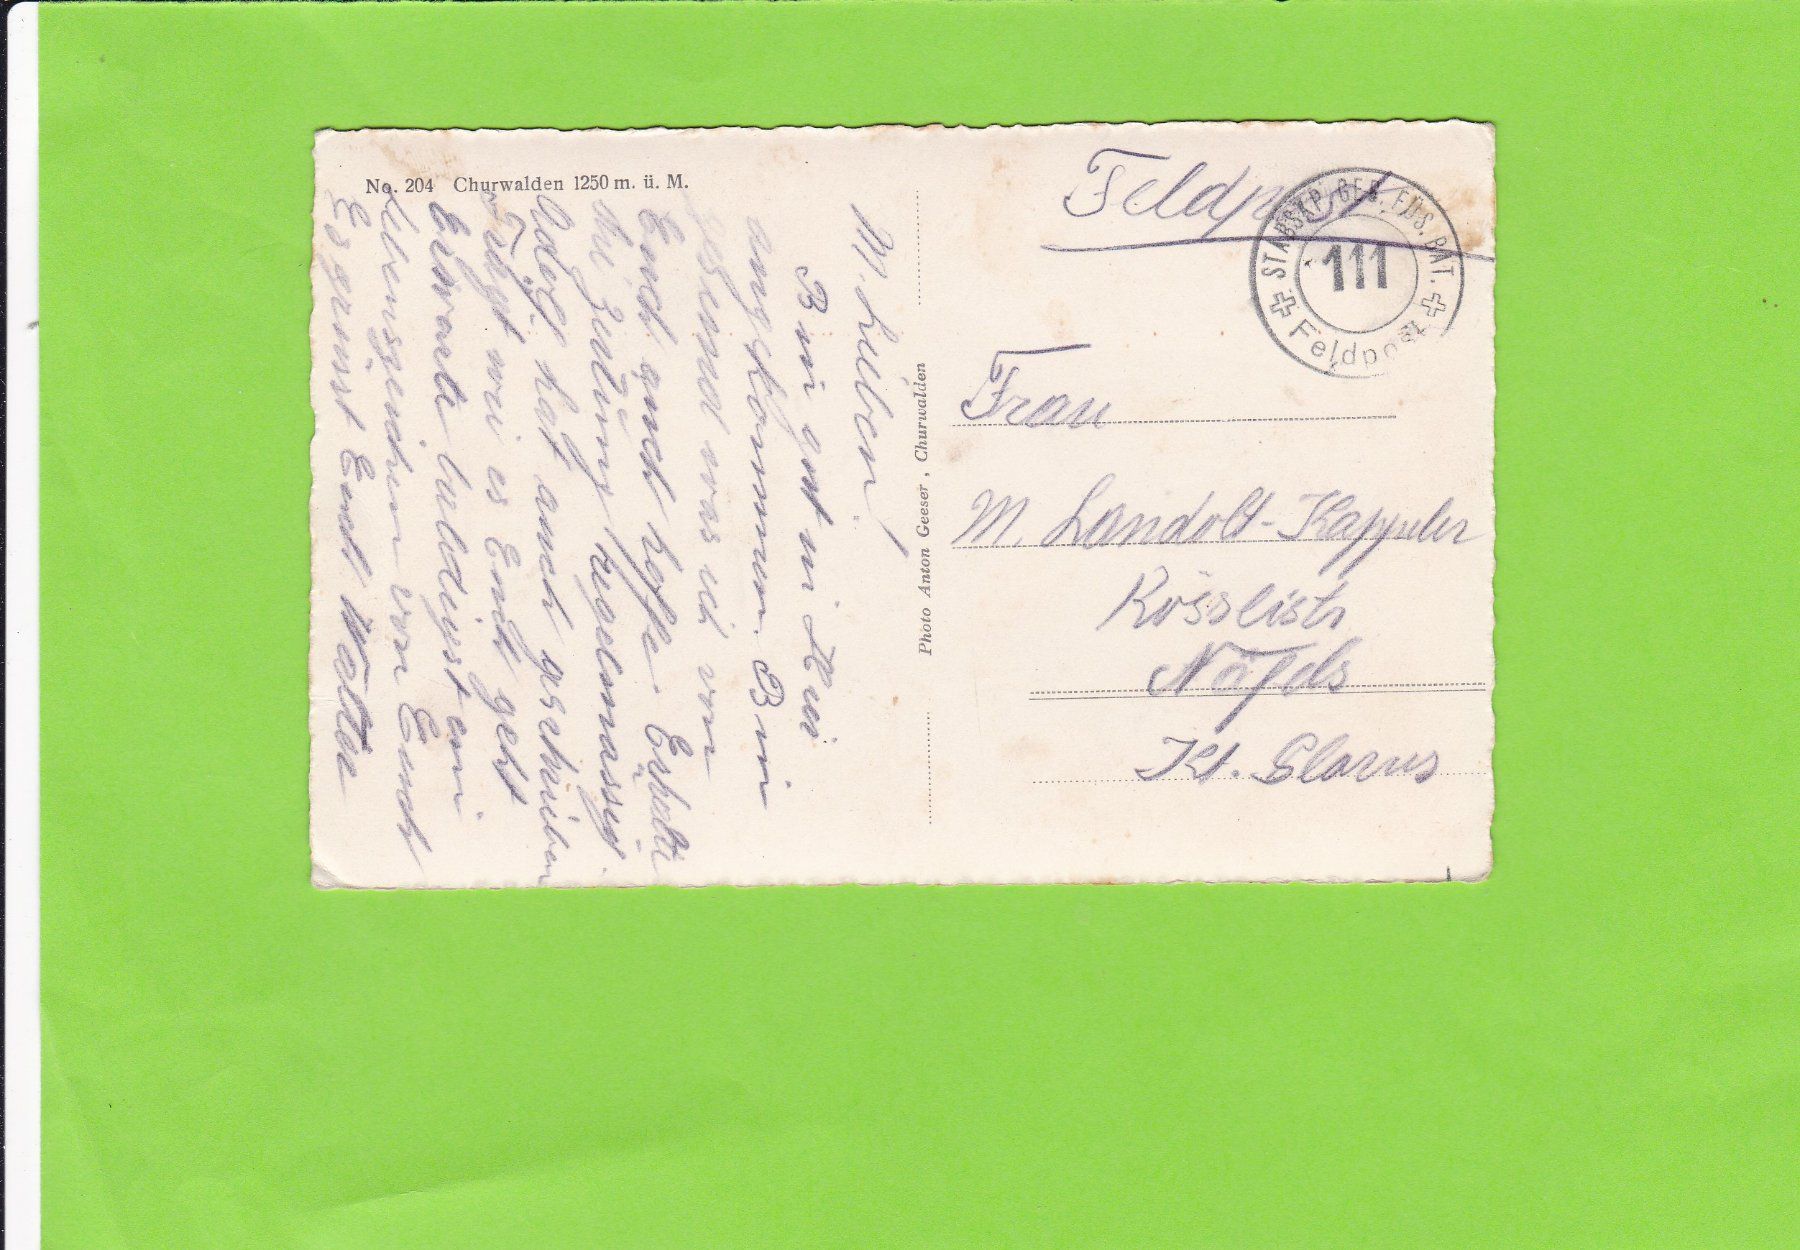 No. 204 Churwalden 1250 m. ü. M.
M. Lieben.
Bin gut in
angekommen. Bin
gesund was ich von
Euch auch hoffe. Erhalte
die Zeitung regelmässig.
Adolf hat auch geschrieben
Frägt wie es Euch geht
Erwarte baldigst ein
Lebenszeichen von Euch
Es grüsst Euch Walter
Photo Anton Geeser, Churwalden
Feldpost
STABSKP. GEB. FÜS. BAT.
111
Feldpost
Frau
M. Landolt-Kappeler
Rösslistr
Näfels
Kt. Glarus